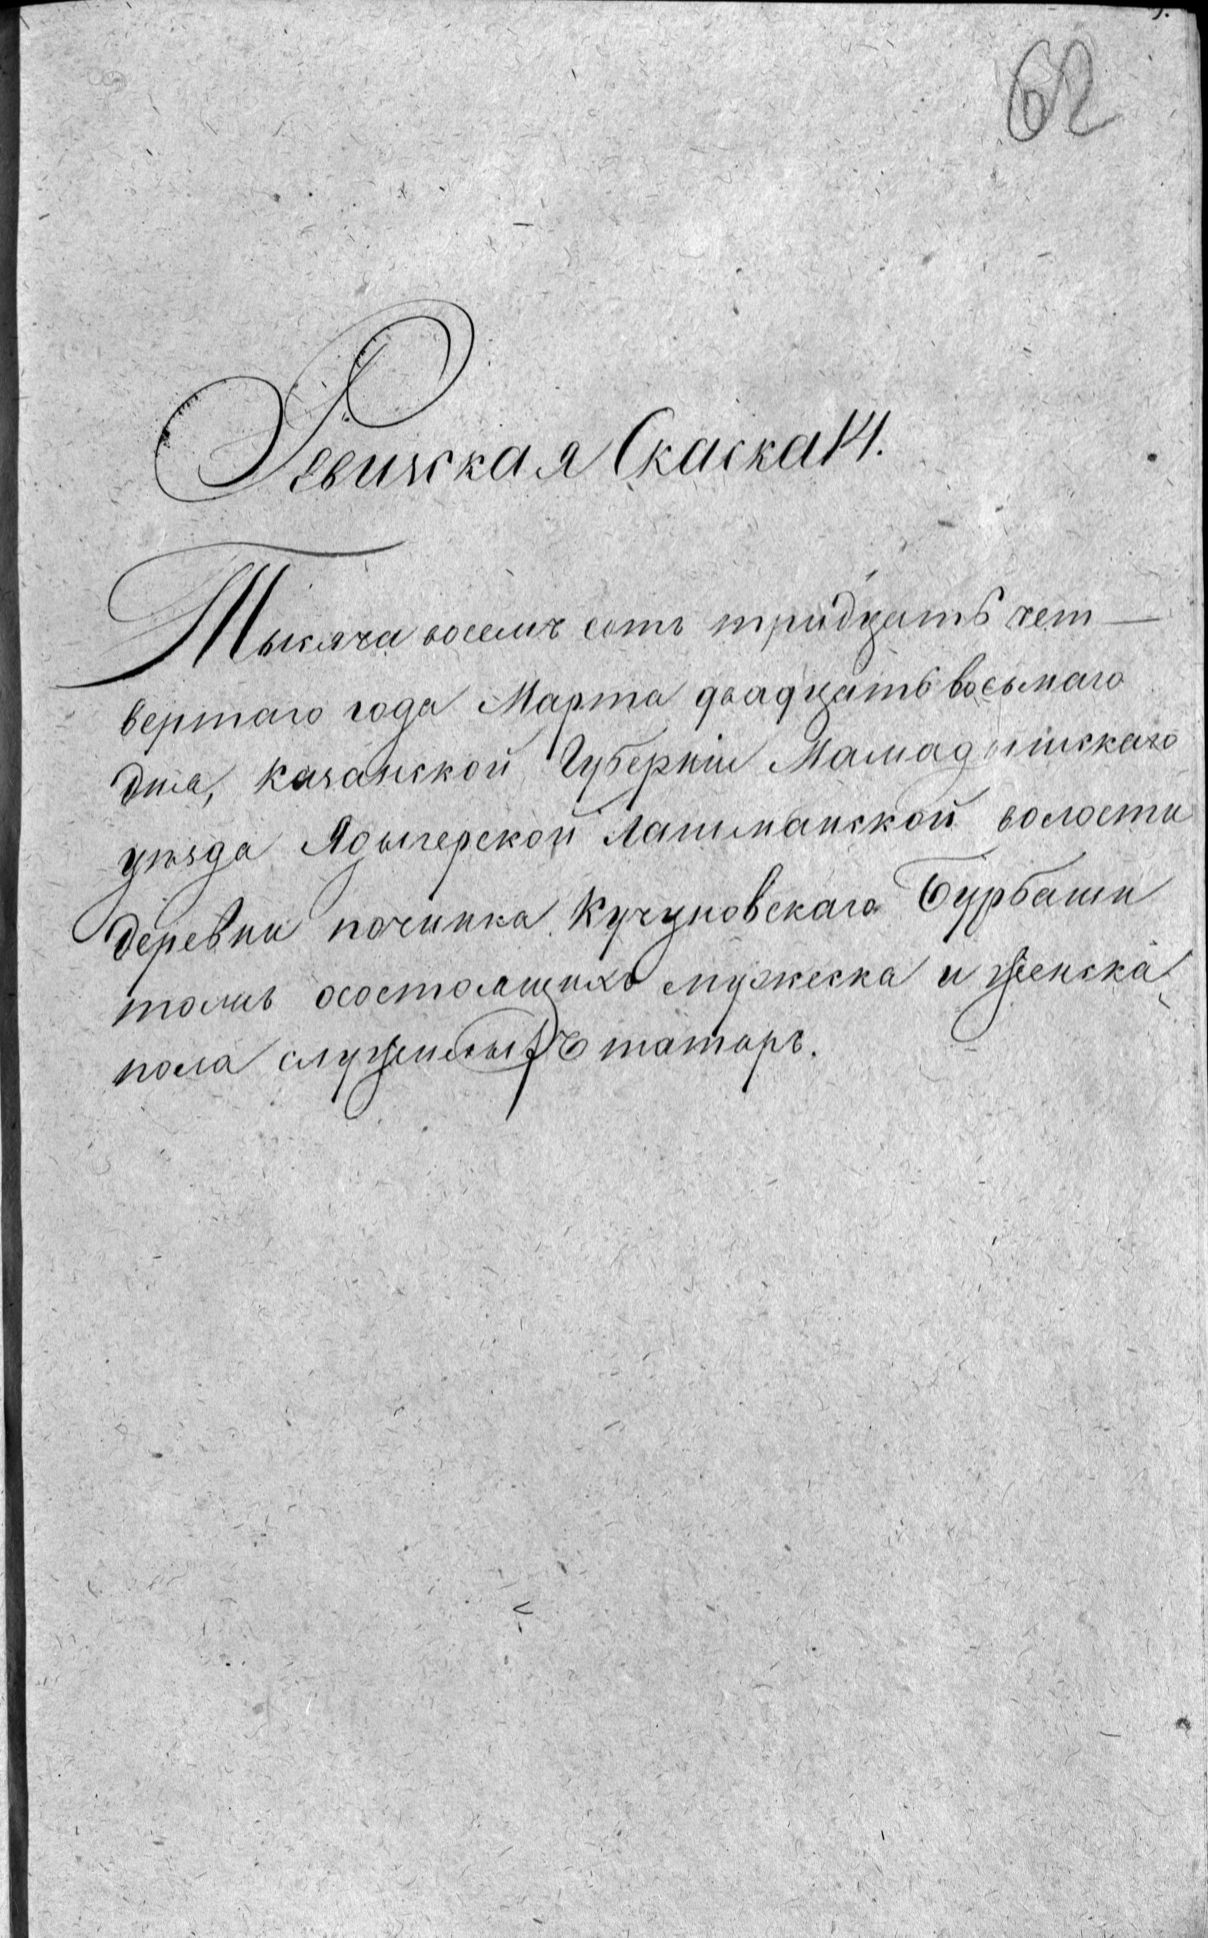 62
Ревизская Скаска 14.
Тысяча восемъ сотъ тридцать чет—
вертаго года Марта двадцать восьмаго
дня, казанской Губерніи Мамадышскаго
уѣзда Ядыгерской Лашманской волости
деревни починка Кучуковскаго Бурбаши
толиь осостоящихъ мужеска и женска
пола служилыхъ татаръ.